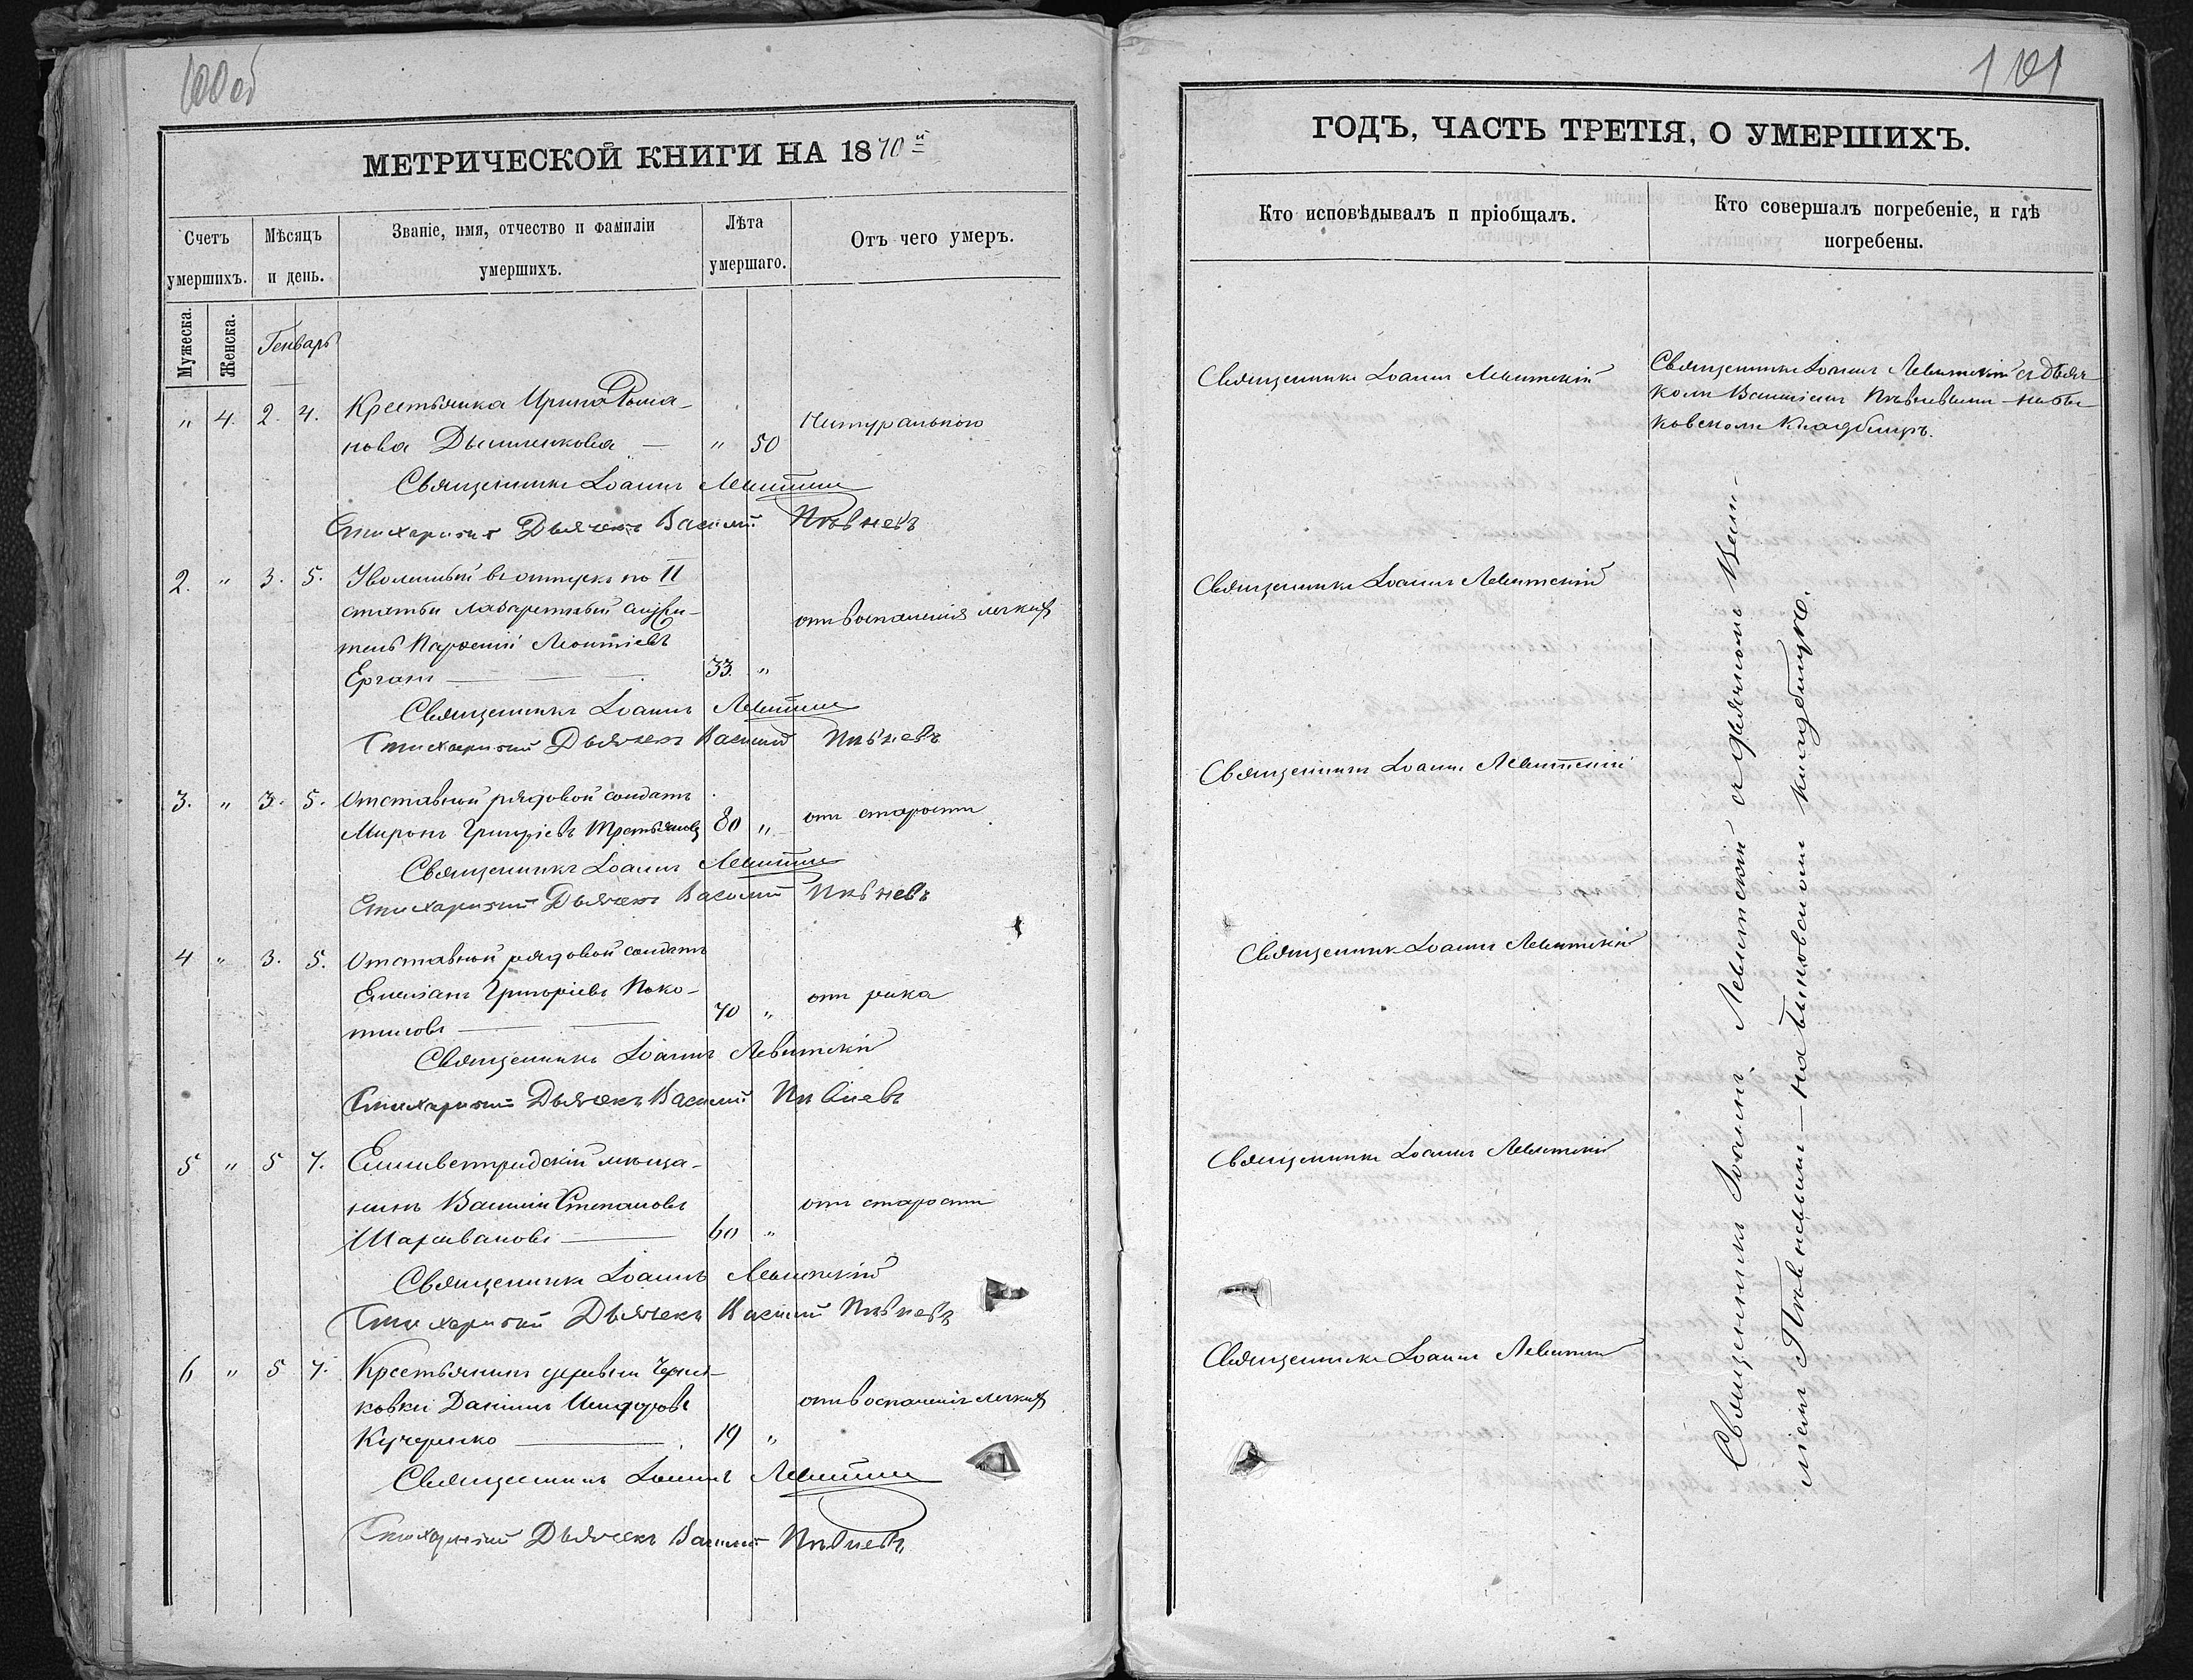 100 об
МЕТРИЧЕСКОЙ КНИГИ НА 1870й
Счетъ умершихъ.
Мужеска.
Женска.
Мѣсяцъ и день.
Званіе, имя, отчество и фамиліи умершихъ.
Лѣта умершаго.
Отъ чего умеръ.
Генварь
" 4. 2. 4. Крестьянка Ирина Рома-
нова Дышленкова — " 50 Натурально
Священникъ Іоаннъ Левитскій
Стихарный Дьячекъ Василій Пѣвневъ
2. " 3. 5. Уволенный въ отпускъ по II
статьи лазаретный служи-
тель Парѳеній Леонтіевъ
Ерганъ — 33. " отъ воспаленія легкихъ
Священникъ Іоаннъ Левитскій
Стихарный Дьячекъ Василій Пѣвневъ
3. " 3. 5. Отставной рядовой солдатъ
Миронъ Григоріевъ Третьяковъ 80 " отъ старости
Священникъ Іоаннъ Левитскій
Стихарный Дьячекъ Василій Пѣвневъ
4 " 3. 5. Отставной рядовой солдатъ
Емиліанъ Григоріевъ Поко-
тиловъ — 70 " отъ рака
Священникъ Іоаннъ Левитскій
Стихарный Дьячекъ Василій Пѣвневъ
5 " 5 7. Елисаветградскій мѣща-
нинъ Василій Степановъ
Шаривановъ — 60 " отъ старости
Священникъ Іоаннъ Левитскій
Стихарный Дьячекъ Василій Пѣвневъ
6 " 5 7. Крестьянинъ деревни
ковки Даніилъ
Кучеренко — 19 " отъ воспаленія легкихъ
Священникъ Іоаннъ Левитскій
Стихарный Дьячекъ Василій Пѣвневъ
101
ГОДЪ, ЧАСТЬ ТРЕТІЯ, О УМЕРШИХЪ.
Кто исповѣдывалъ и пріобщалъ.
Кто совершалъ погребеніе, и гдѣ погребены.
Священникъ Іоаннъ Левитскій
Священникъ Іоаннъ Левитскій съ дьяч-
комъ Василіемъ Пѣвневымъ на Бы-
ковскомъ кладбищѣ.
Священникъ Іоаннъ Левитскій
Священникъ Іоаннъ Левитскій
Священникъ Іоаннъ Левитскій
Священникъ Іоаннъ Левитскій
Священникъ Іоаннъ Левитскій
Священникъ Іоаннъ Левитскій съ дьячкомъ Васи-
ліемъ Пѣвневымъ — на Быковскомъ кладбищѣ.